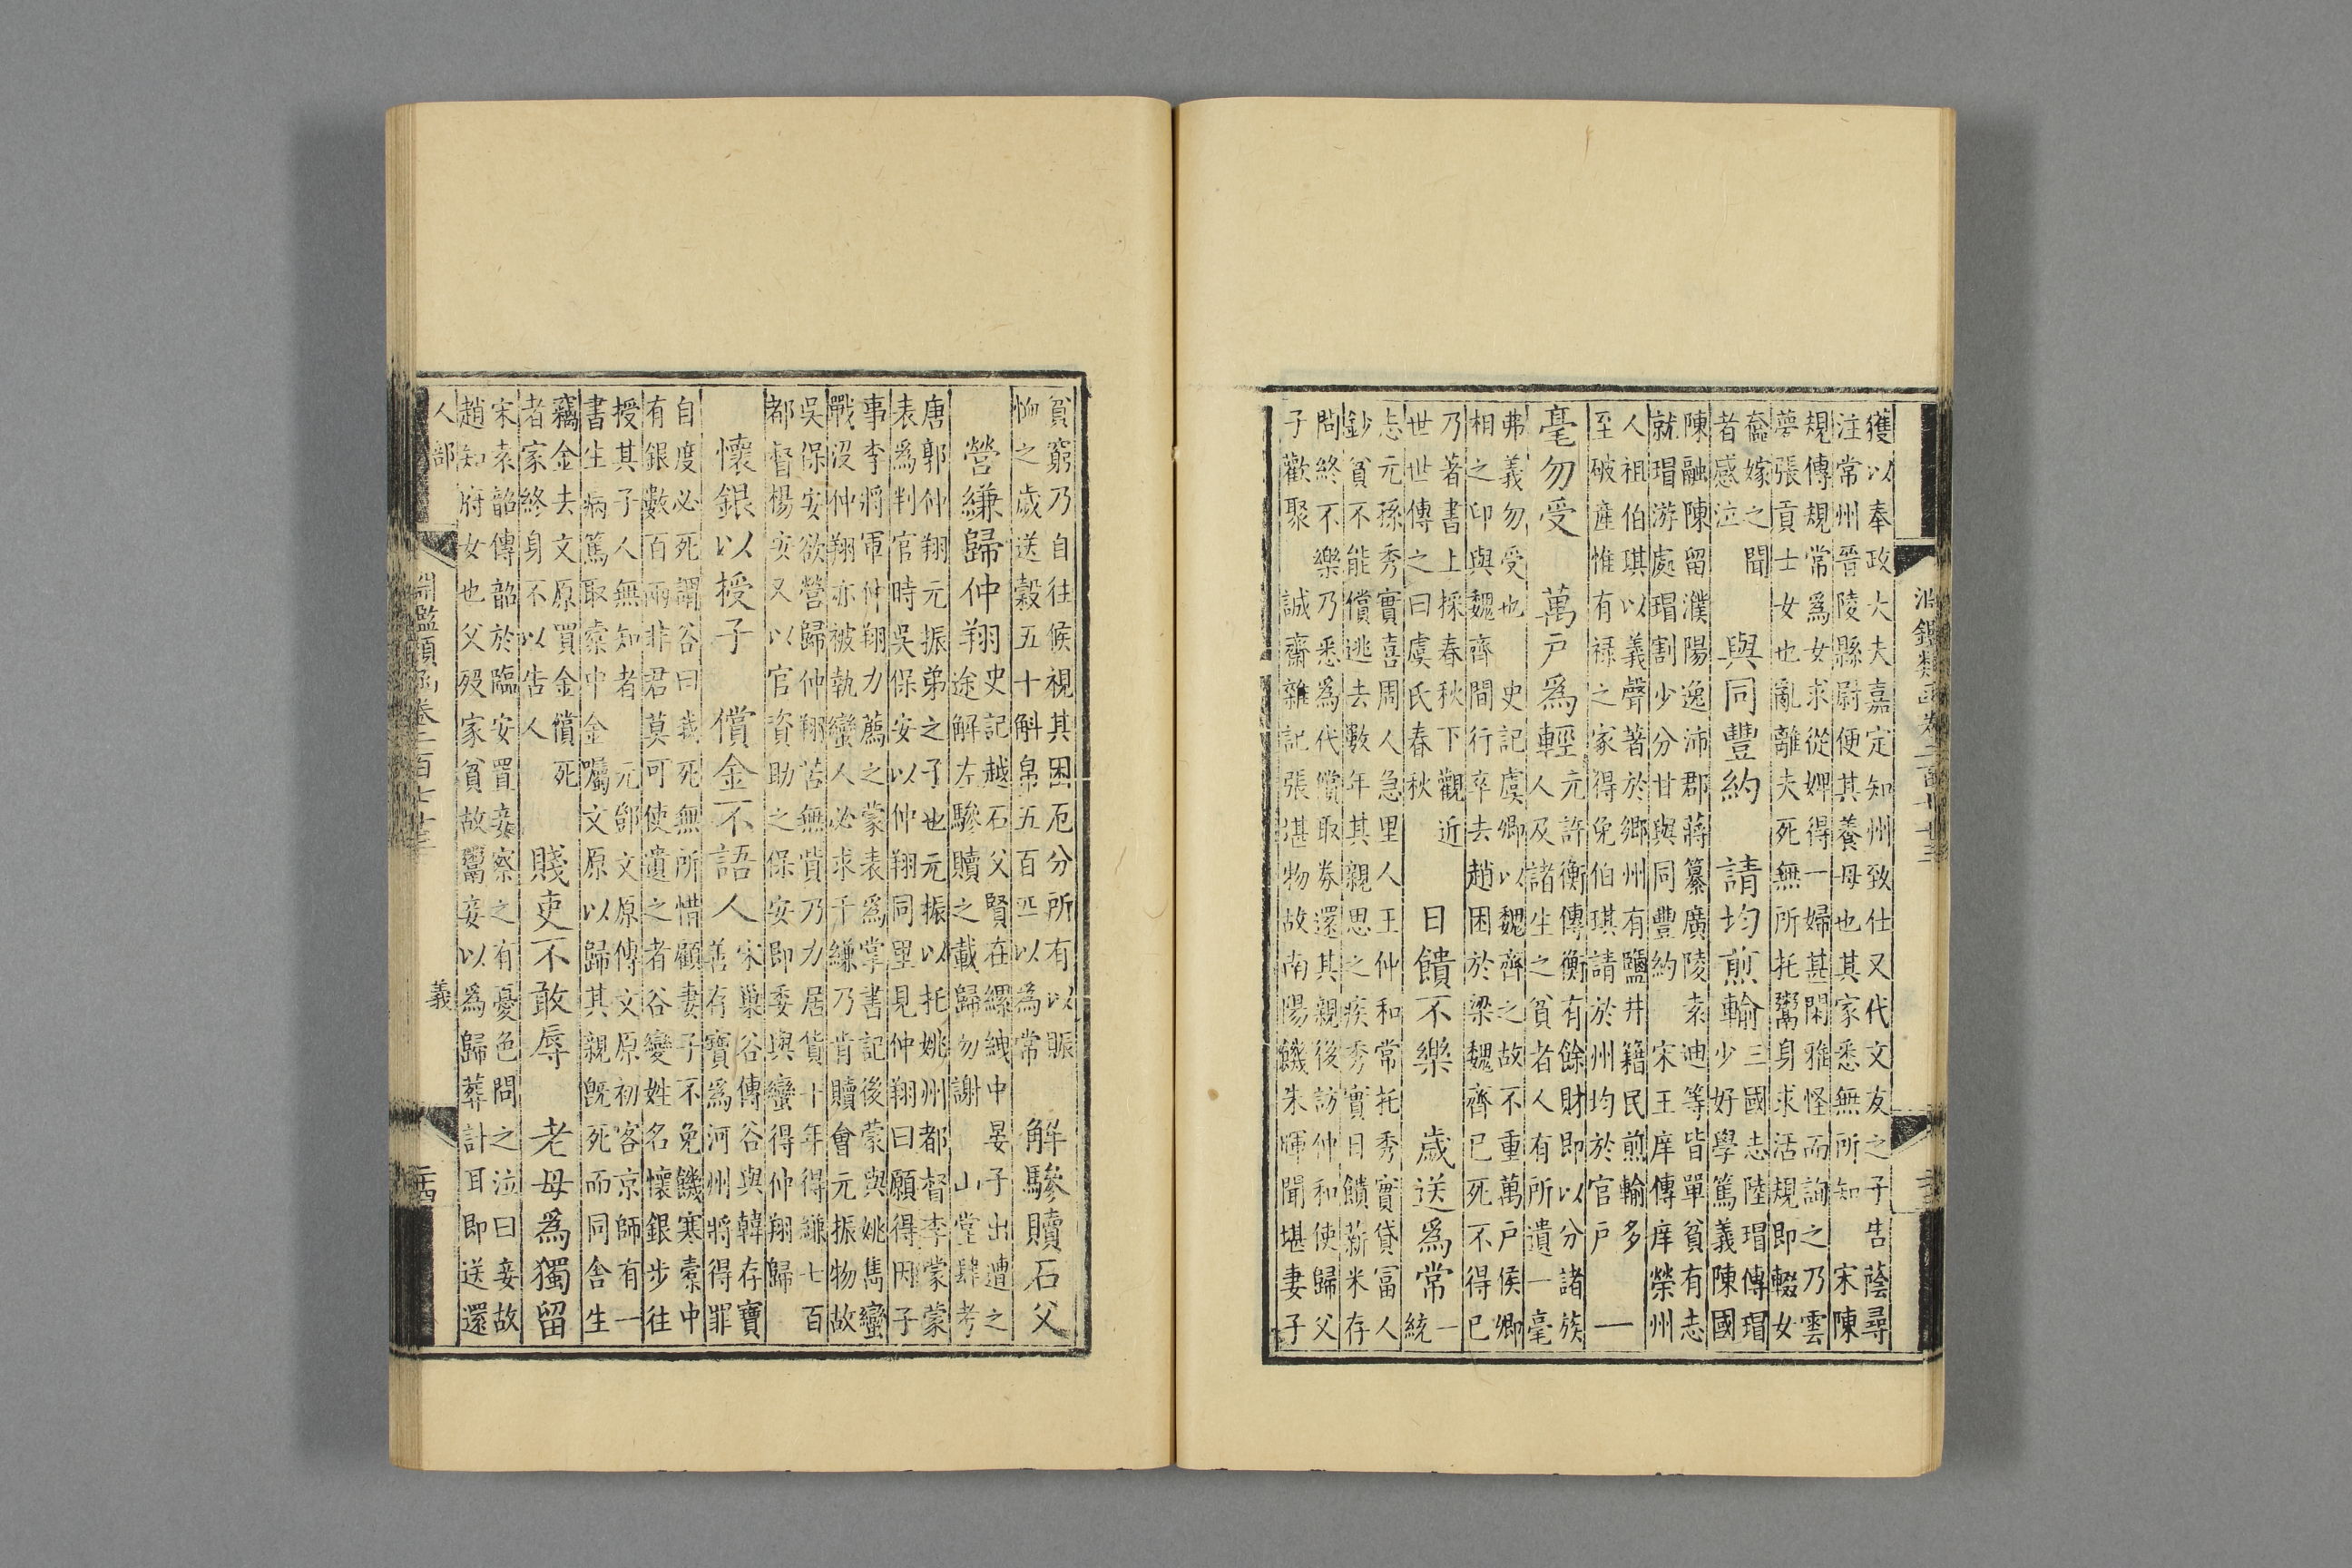 淵鑑類函卷二百七十三
獲以奉政大夫嘉定知州致仕又代文友之子告蔭尋
注常州晉陵縣尉便其養母也其家悉無所知　宋陳
規傳規常爲女求從婢得一婦甚閑雅怪而詢之乃雲
夢張貢士女也亂離夫死無所托鬻身求活規即輟女
奩嫁之聞
者感泣
與同豐約　請均煎輸
三國志陸瑁傳瑁
少好學篤義陳國
陳融陳留濮陽逸沛郡蔣纂廣陵袁迪等皆單貧有志
就瑁游處瑁割少分甘與同豐約　宋王庠傳庠榮州
人祖伯琪以義聲著於鄉州有鹽井籍民煎輸多
至破產惟有祿之家得免伯琪請於州均於官戶
一
毫勿受　萬戶爲輕
元許衡傳衡有餘財即以分諸族
人及諸生之貧者人有所遺一毫
弗義勿受也　史記虞卿以魏齊之故不重萬戶侯卿
相之印與魏齊間行卒去趙困於梁魏齊已死不得已
乃著書上採春秋下觀近
世世傳之曰虞氏春秋
日饋不樂　歲送爲常
一
統
志元孫秀實喜周人急里人王仲和常托秀實貸富人
鈔貧不能償逃去數年其親思之疾秀實日饋薪米存
問終不樂乃悉爲代償取券還其親後訪仲和使歸父
子歡聚　誠齋雜記張堪物故南陽饑朱暉聞堪妻子
貧窮乃自往候視其困厄分所有以賑
恤之歲送穀五十斛帛五百匹以爲常
解驂贖石父
營縑歸仲翔
史記越石父賢在縲絏中晏子出遭之
途解左驂贖之載歸勿謝　山堂肆考
唐郭仲翔元振弟之子也元振以托姚州都督李蒙蒙
表爲判官時吳保安以仲翔同里見仲翔曰願得因子
事李將軍仲翔力薦之蒙表爲掌書記後蒙與姚雋蠻
戰沒仲翔亦被執蠻人必求千縑乃肯贖會元振物故
吳保安欲營歸仲翔苦無貲乃力居貨十年得縑七百
都督楊安又以官資助之保安即委與蠻得仲翔歸
懷銀以授子　償金不語人
宋巢谷傳谷與韓存寶一
善存寶爲河州將得罪
自度必死謂谷曰我死無所惜顧妻子不免饑寒橐中
有銀數百兩非君莫可使遺之者谷變姓名懷銀步往
授其子人無知者　元鄧文原傳文原初客京師有一
書生病篤取橐中金囑文原以歸其親旣死而同舍生
竊金去文原買金償死
者家終身不以告人
賤吏不敢辱　老母爲獨留
宋袁韶傳韶於臨安置妾察之有憂色問之泣曰妾故
趙知府女也父歿家貧故鬻妾以爲歸葬計耳即送還
人部　淵鑑類函卷二百七十三　義　二十四